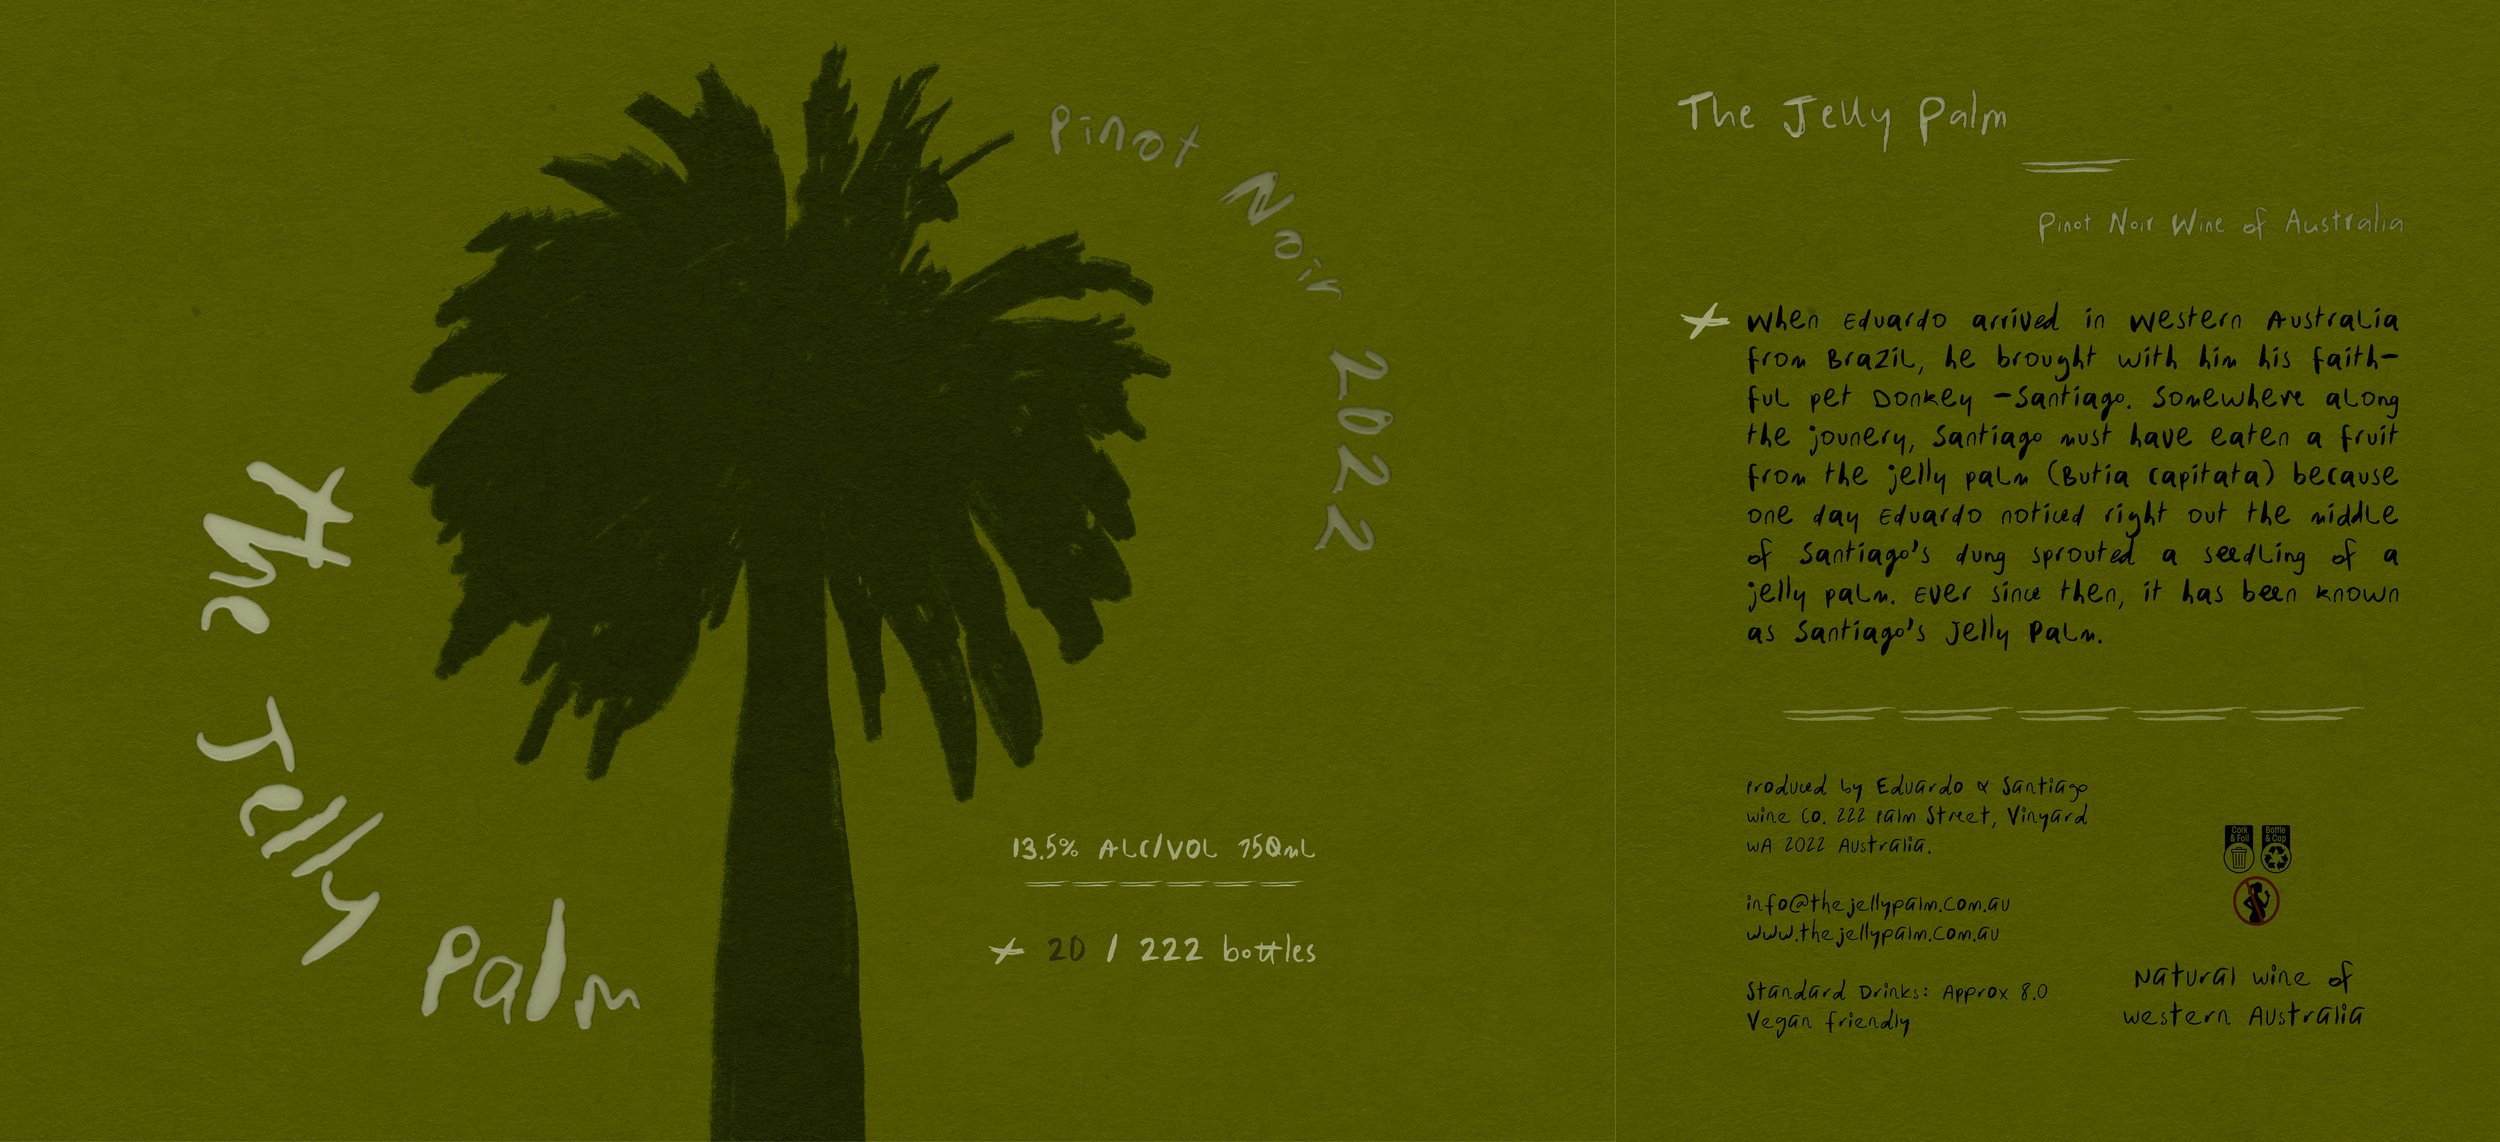 the Jelly Palm
Pinot Noir 2022
13.5% ALC/VOL 750mL
20 / 222 bottles
The Jelly Palm
Pinot Noir Wine of Australia
When Eduardo arrived in Western Australia
from Brazil, he brought with him his faith-
ful pet Donkey -Santiago. Somewhere along
the jounery, Santiago must have eaten a fruit
from the jelly palm (Butia capitata) because
one day Eduardo noticed right out the middle
of Santiago's dung sprouted a seedling of a
jelly palm. Ever since then, it has been known
as Santiago's Jelly Palm.
Produced by Eduardo & Santiago
wine Co. 222 Palm Street, Vinyard
WA 2022 Australia.
info@thejellypalm.com.au
www.thejellypalm.com.au
Standard Drinks: Approx 8.0
Vegan friendly
Cork
& Foil
Bottle
& Cap
Natural wine of
western Australia